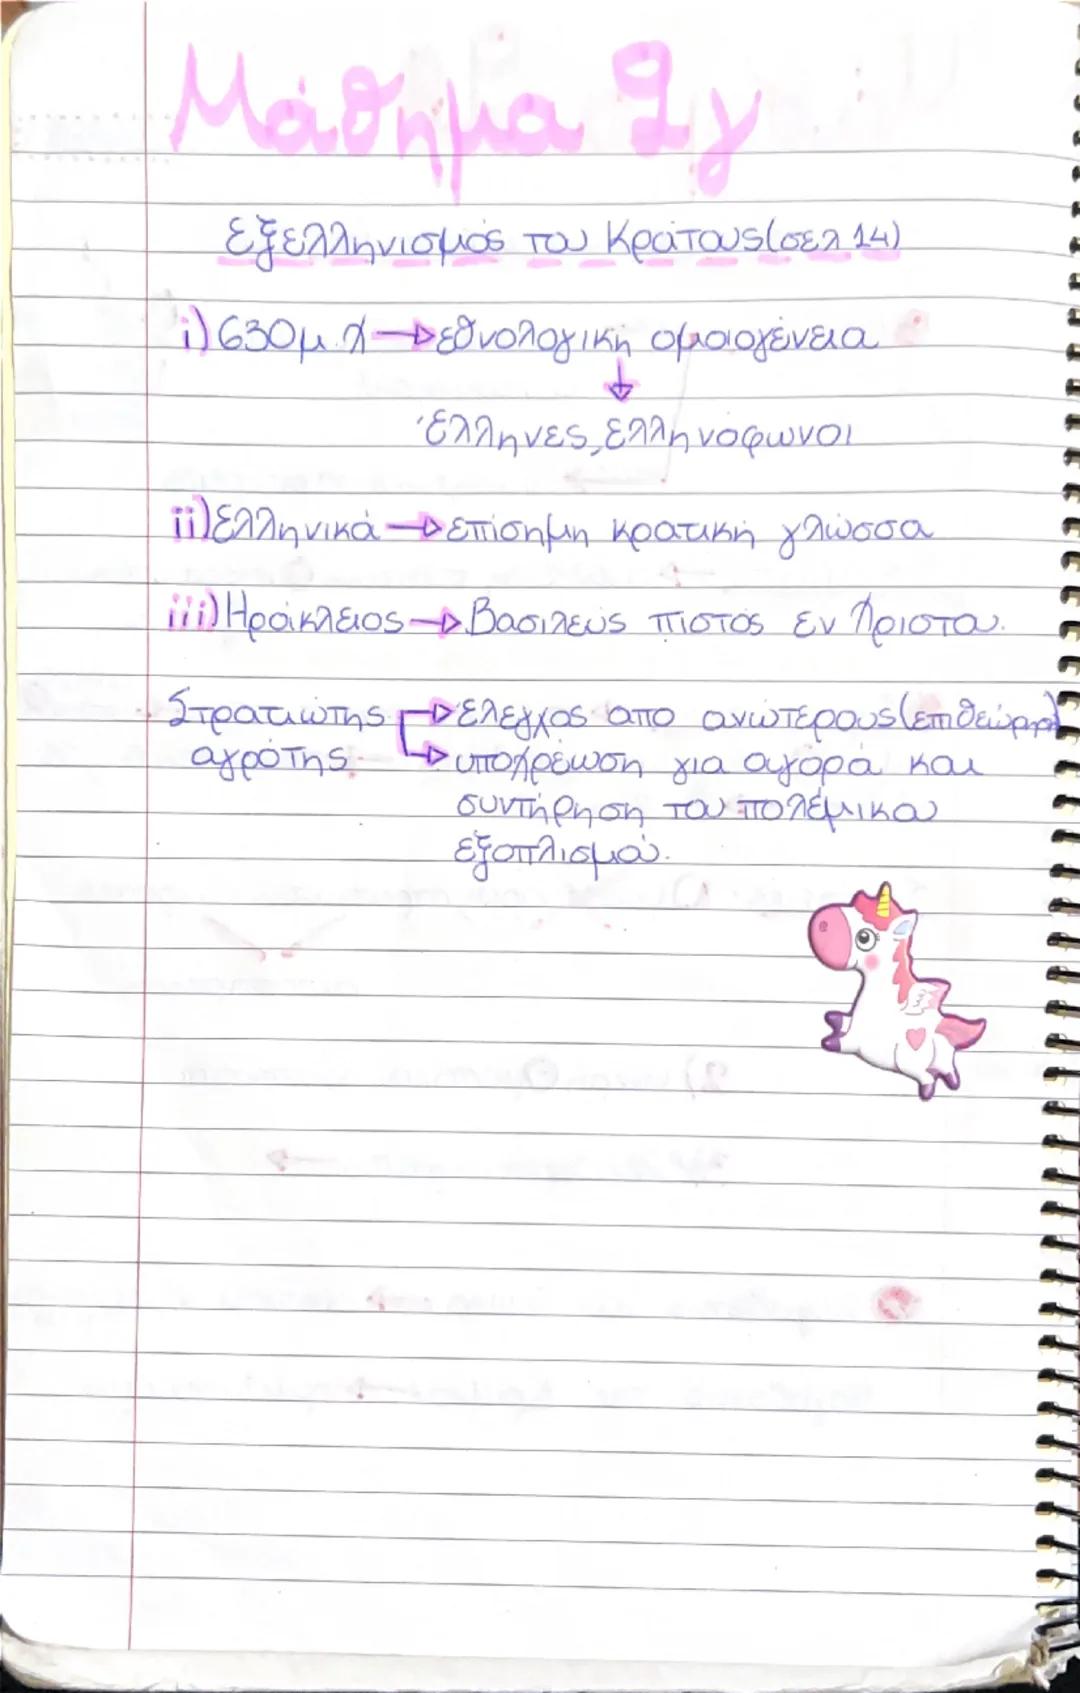 Μάθημα 2γ
Εξελληνισμός του Κράτους(σελ 14)
i) 630μ.Χ → εθνολογική ομοιογένεια
↓
Έλληνες, ελληνόφωνοι
ii) Ελληνικά → επίσημη κρατική γλώσσα
iii) Ηράκλειος → Βασιλεύς πιστός εν Χριστού.
Στρατιώτης → έλεγχος απο ανώτερους(
αγρότης → υποχρέωση για αγορά και
συντήρηση του πολεμικού
εξοπλισμού.